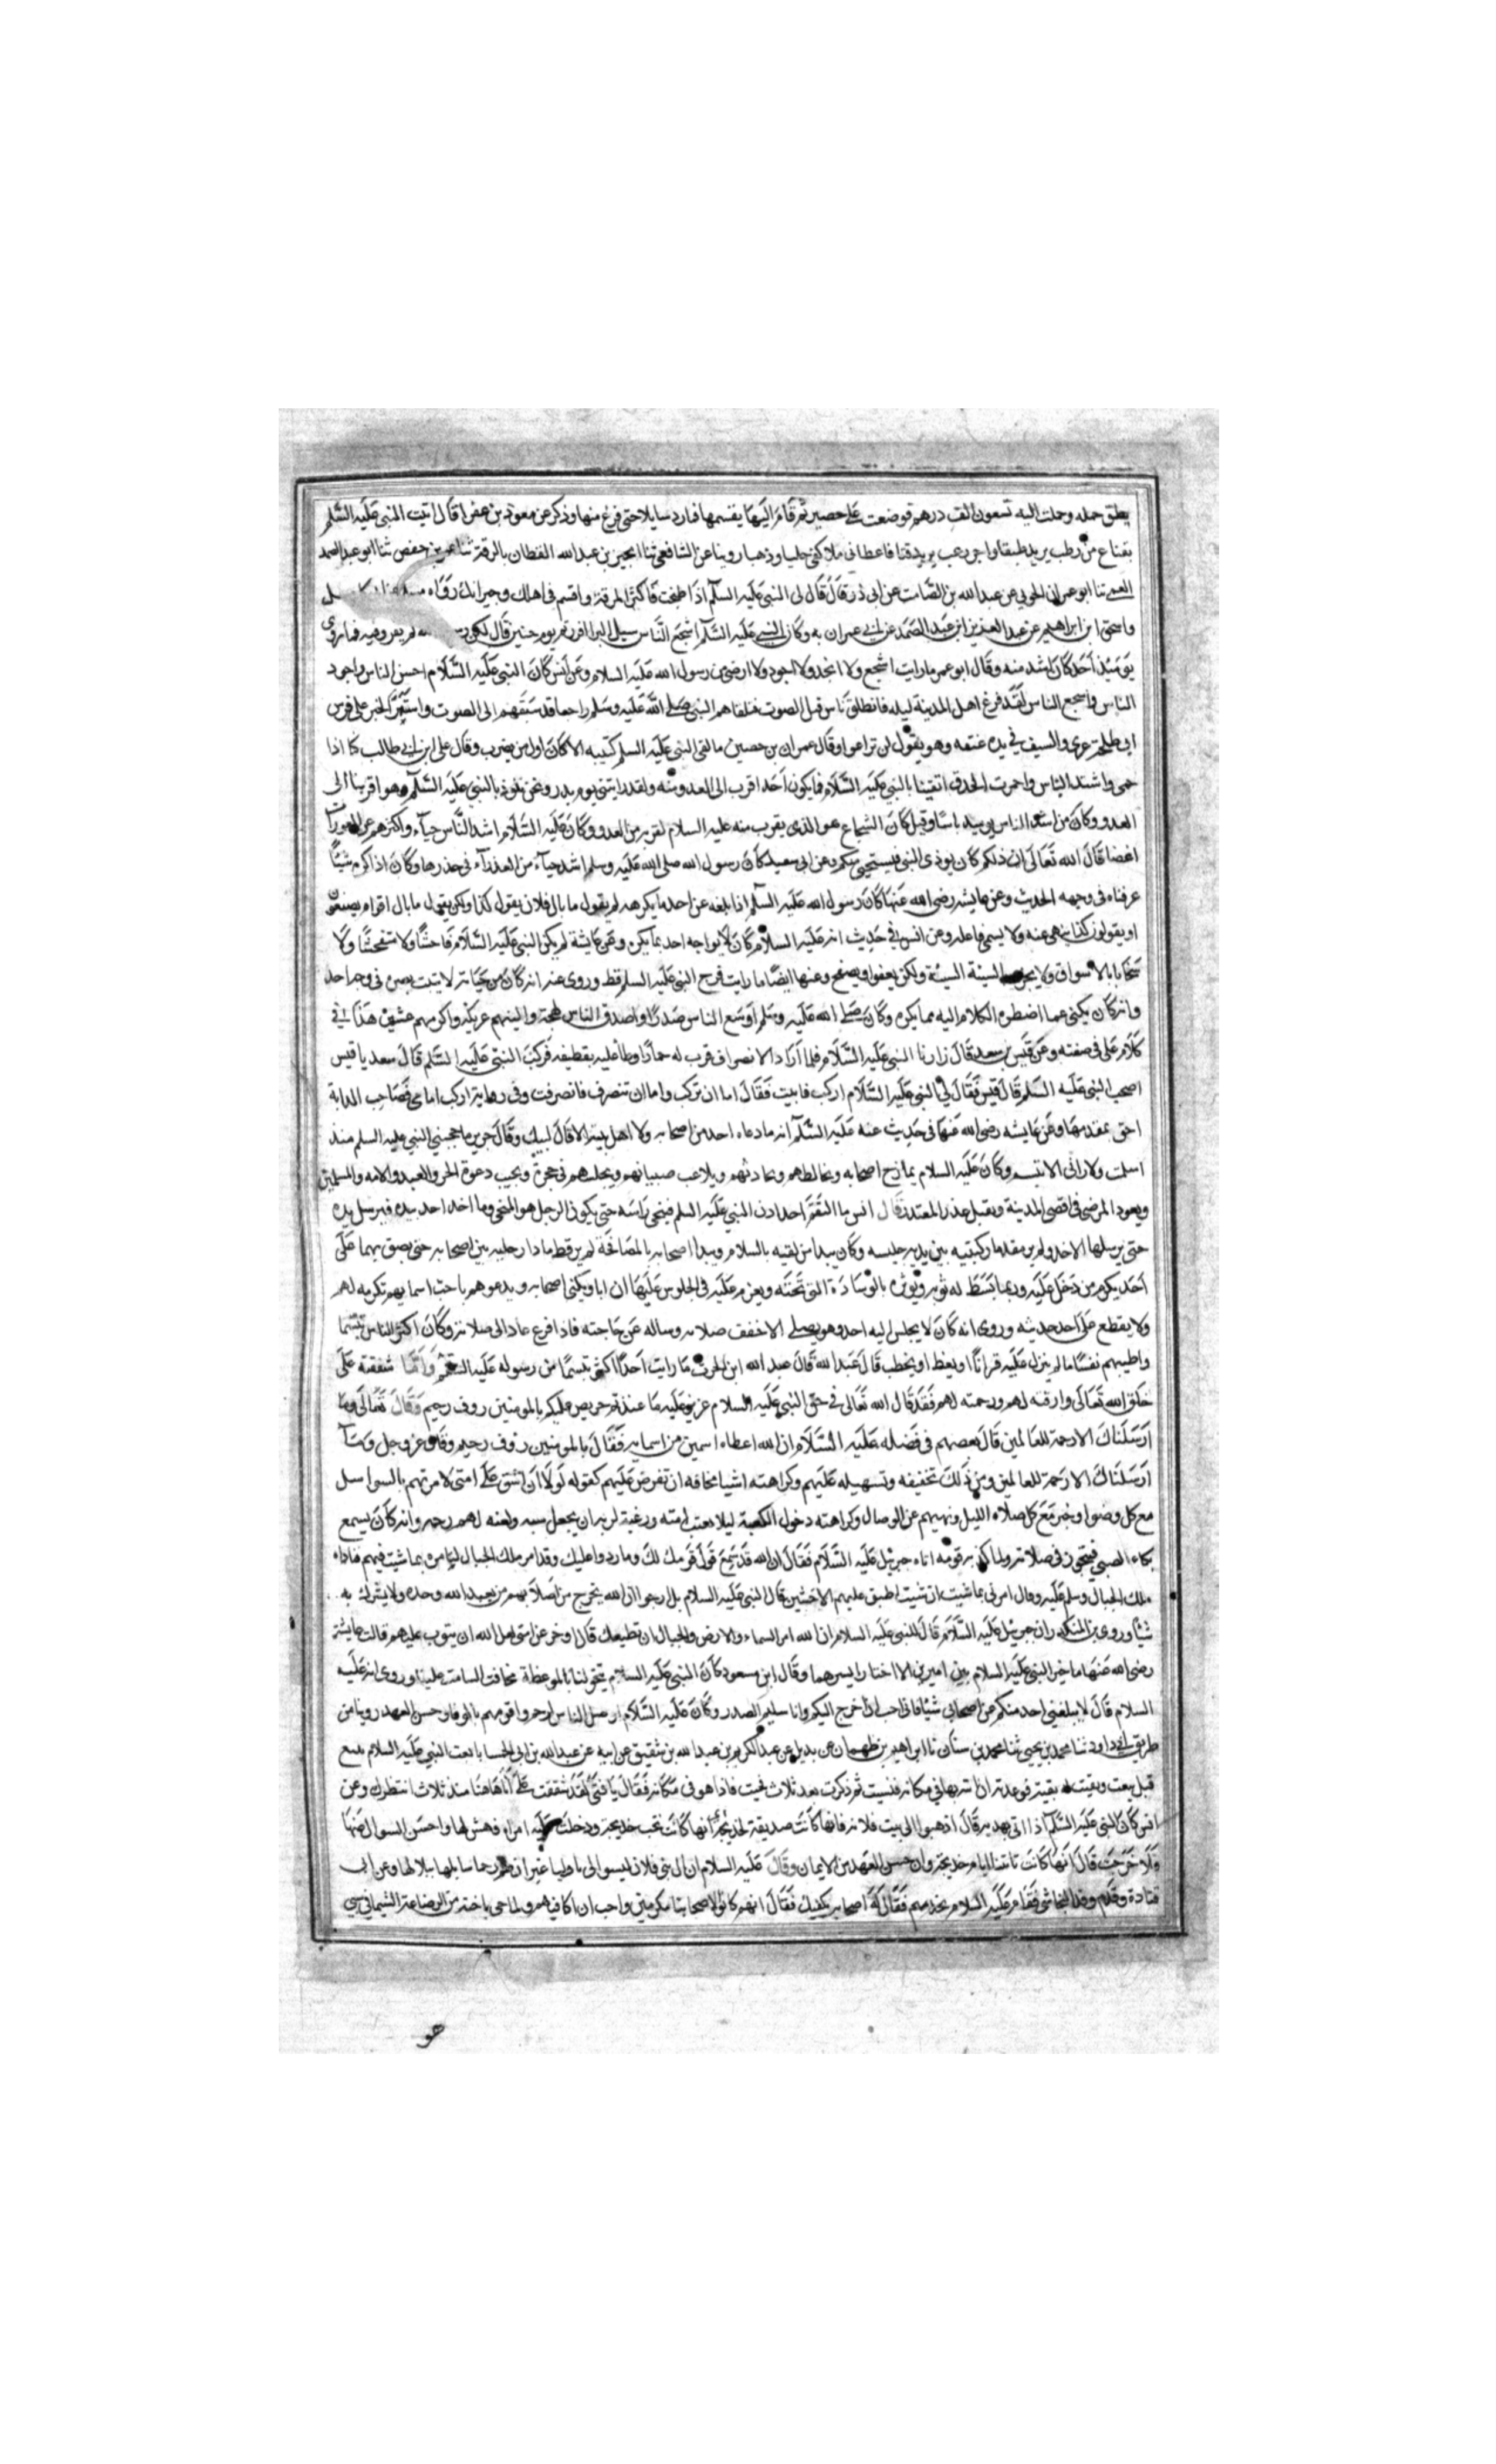 يطق حمله وحملت اليه تسعون الف درهم فوضعت على حصير ثم قام اليها يقسمها فما رد سايلا حتى فرغ منها وذكر عن معوذ بن عفرا قال اتيت النبي عليه السلم
بقناع من رطب يريد طبقا واجر زغب يريد قثا فاعطاني ملا كفي حليا وذهبا روينا عن الشافعي ثنا ابو عبد الله القطان بالرقة ثنا عمر بن حفص ثنا ابو عبد الصمد
العمي ثنا ابو عمران الجوني عن عبد الله بن الصامت عن ابي ذر قال قال لي النبي عليه السلم اذا طبخت فاكثر المرقة واقسم في اهلك وجيرانك رواه
واسحق ابن ابراهيم عن عبد العزيز ابن عبد الصمد عن ابي عمران به وكان النبي عليه السلم اشجع الناس سيل البرا افررتم يوم حنين قال لكن لم يفر وفيه فما روي
يوميذ احد كان اشد منه وقال ابو عمر ما رايت اشجع ولا انجد ولا اجود ولا ارضى من رسول الله عليه السلام وعن انس كان النبي عليه السلام احسن الناس واجود
الناس واشجع الناس لقد فزع اهل المدينة ليله فانطلق ناس قبل الصوت فتلقاهم النبي صلى الله عليه وسلم راجعا قد سبقهم الى الصوت واستبرا الخبر على فرس
ابي طلحة عرى والسيف في يده عنقه وهو يقول لن تراعوا وقال عمران بن حصين ما لقي النبي عليه السلم كتيبه الا كان اول من يضرب وقال علي ابن ابي طالب كنا اذا
حمي واشتد الباس واحمرت الحدق اتقينا بالنبي عليه السلام فما يكون احد اقرب الى العدو منه ولقد رايتني يوم بدر ونحن نلوذ بالنبي عليه السلم وهو اقربنا الى
العدو وكان من اشد الناس يوميد باسا وقيل كان الشجاع هو الذي يقرب منه عليه السلام لقربه من العدو وكان عليه السلام اشد الناس حياء واكثرهم عن العورات
اغضا قال الله تعالى ان ذلكم كان يوذي النبي فيستحيي منكم وعن ابي سعيد كان رسول الله صلى الله عليه وسلم اشد حياء من العذراء في خدرها وكان اذا كره شيئا
عرفناه في وجهه الحديث وعن عايشه رضى الله عنها كان رسول الله عليه السلم اذا بلغه عن احد ما يكرهه لم يقول ما بال فلان يقول كذا ولكن يقول ما بال اقوام يصنعون
او يقولون كذا ينهى عنه ولا يسمي فاعله وعن انس في حديث انه عليه السلام كان لا يواجه احد بما يكره وعن عايشة لم يكن النبي عليه السلام فاحشا ولا متفحشا ولا
سخابا بالاسواق ولا يجزي السيئة السيئة ولكن يعفو او يصفح وعنها ايضا ما رايت فرج النبي عليه السلم قط وروي عنه انه كان من حيائه لا يثبت بصره في وجه احد
وانه كان يكني عما اضطره الكلام اليه مما يكره وكان صلى الله عليه وسلم اوسع الناس صدرا واصدق الناس لهجة والينهم عريكة واكرمهم عشرة هذا في
كلام علي في صفته وعن قيس بن سعد قال زارنا النبي عليه السلام فلما اراد الانصراف قرب له حمارا وطا عليه بقطيفه فركب النبي عليه السلم قال سعد يا قيس
اصحب النبي عليه السلم قال قيس فقال لي النبي عليه السلام اركب فابيت فقال اما ان تركب واما ان تنصرف فانصرفت وفي رواية اركب امامي فصاحب الدابة
احق بمقدمها وعن عايشه رضى الله عنها في حديث عنه عليه السلم انه ما دعاه احد من اصحابه ولا اهل بيته الا قال لبيك وقال جرير ما حجبني النبي عليه السلم منذ
اسلمت ولا راني الا تبسم وكان عليه السلام يمازح اصحابه ويخالطهم ويحادثهم ويلاعب صبيانهم ويجلسهم في حجره ويجيب دعوة الحر والعبد والامه والمسلمين
ويعود المرضى في اقصى المدينة ويقبل عذر المعتذر قال انس ما التقم احد اذن النبي عليه السلم فينحي راسه حتى يكون الرجل هو المنحي وما اخذ احد بيده فيرسل يده
حتى يرسلها الاخد ولم ير مقدما ركبتيه بين يدي جليسه وكان يبدا من لقيه بالسلام ويبدا اصحابه بالمصافحة لم ير قط مادا رجليه بين اصحابه حتى يضيق بهما على
احد يكرم من دخل عليه وربما بسط له ثوبه ويوثره بالوسادة التي تحته ويعزم عليه في الجلوس عليها ان ابا ويكني اصحابه ويدعوهم باحب اسمايهم تكرمه لهم
ولا يقطع على احد حديثه وروي انه كان لا يجلس اليه احد وهو يصلي الا خفف صلاته وساله عن حاجته فاذا فرغ عاد الى صلاته وكان اكثر الناس تبسما
واطيبهم نفسا ما لم ينزل عليه قرانا او يعظ او يخطب قال عبد الله قال عبد الله ابن الحرث ما رايت احدا اكثر تبسما من رسوله عليه السلم واما شفقته على
خلق الله تعالى وارقته لهم ورحمته لهم فقد قال الله تعالى في حق النبي عليه السلام عزيز عليه ما عنتم حريص عليكم بالمومنين روف رحيم وقال تعالى وما
ارسلناك الا رحمة للعالمين قال بعضهم في فضله عليه السلام ان الله اعطاه اسمين من اسمايه فقال بالمومنين روف رحيم وقال عز وجل وما
ارسلناك الا رحمة للعالمين ومن ذلك تخفيفه وتسهيله عليهم وكراهته اشيا مخافه ان تفرض عليهم كقوله لولا ان اشق على امتي لامرتهم بالسواك
مع كل وضوا وخبر مع كل صلاه الليل ونهيهم عن الوصال وكراهته دخول الكعبة ليلا يعتب امته ورغبة لربه ان يجعل سبه ولعنه لهم رحمه وانه كان يسمع
بكاء الصبي فيتجوز في صلاته ولما كذبه قومه اتاه جبريل عليه السلام فقال ان الله قد سمع قول قومك لك وما ردوا عليك وقد امر ملك الجبال ليامره بما شيت فيهم فناداه
ملك الجبال وسلم عليه وقال امرني بما شيت ان شيت اطبق عليهم الاخشبين قال النبي عليه السلام بل ارجوا ان الله يخرج من اصلابهم من يعبد الله وحده ولا يشرك به
شيئا وروى بن المنكدر ان جبريل عليه السلام قال للنبي عليه السلام ان الله امر السماء والارض والجبال ان تطيعك قال اوخر عن امتي لعل الله ان يتوب عليهم قالت عايشة
رضى الله عنها ما خير النبي عليه السلام بين امرين الا اختار ايسرهما وقال ابن مسعود كان النبي عليه السلام يتخولنا بالموعظة مخافة السامة علينا وروي انه عليه
السلام قال لا يبلغني احد منكم عن اصحابي شيئا فاني احب ان اخرج اليكم وانا سليم الصدر وكان عليه السلام اوصل الناس لرحم واقومهم بالوفا وحسن العهد روينا من
طريق ابي داود ثنا محمد بن يحيى ثنا محمد بن سنان نا ابراهيم بن طهمان عن بديل عن عبد الكريم بن عبد الله بن شقيق عن ابيه عن عبد الله بن ابي الحمسا بايعت النبي عليه السلام ببيع
قبل يبعث وبقيت له بقية فوعدته ان اتيه بها في مكانه فنسيت ثم ذكرت بعد ثلاث فجيت فاذا هو في مكانه فقال يا فتى لقد شققت على انا هاهنا منذ ثلاث انتظرك وعن
انس كان النبي عليه السلم اذا اتي بهدية قال اذهبوا الى بيت فلانه فانها كانت صديقة لخديجة انها كانت تحب خديجة ودخلت عليه امراه فهش لها واحسن السوال عنها
ولما خرجت قال انها كانت تاتينا ايام خديجة وان حسن العهد من الايمان وقال عليه السلام ان ال بني فلان ليسوا الي باوليا غير ان لهم رحما سابلها ببلالها وعن ابي
قتادة وقدم وفد النجاشي فقام عليه السلام يخدمهم فقال له اصحابه نكفيك فقال انهم كانوا لاصحابنا مكرمين واحب ان اكافيهم ولما جي باخته من الرضاعة الشيما في سبي
هو